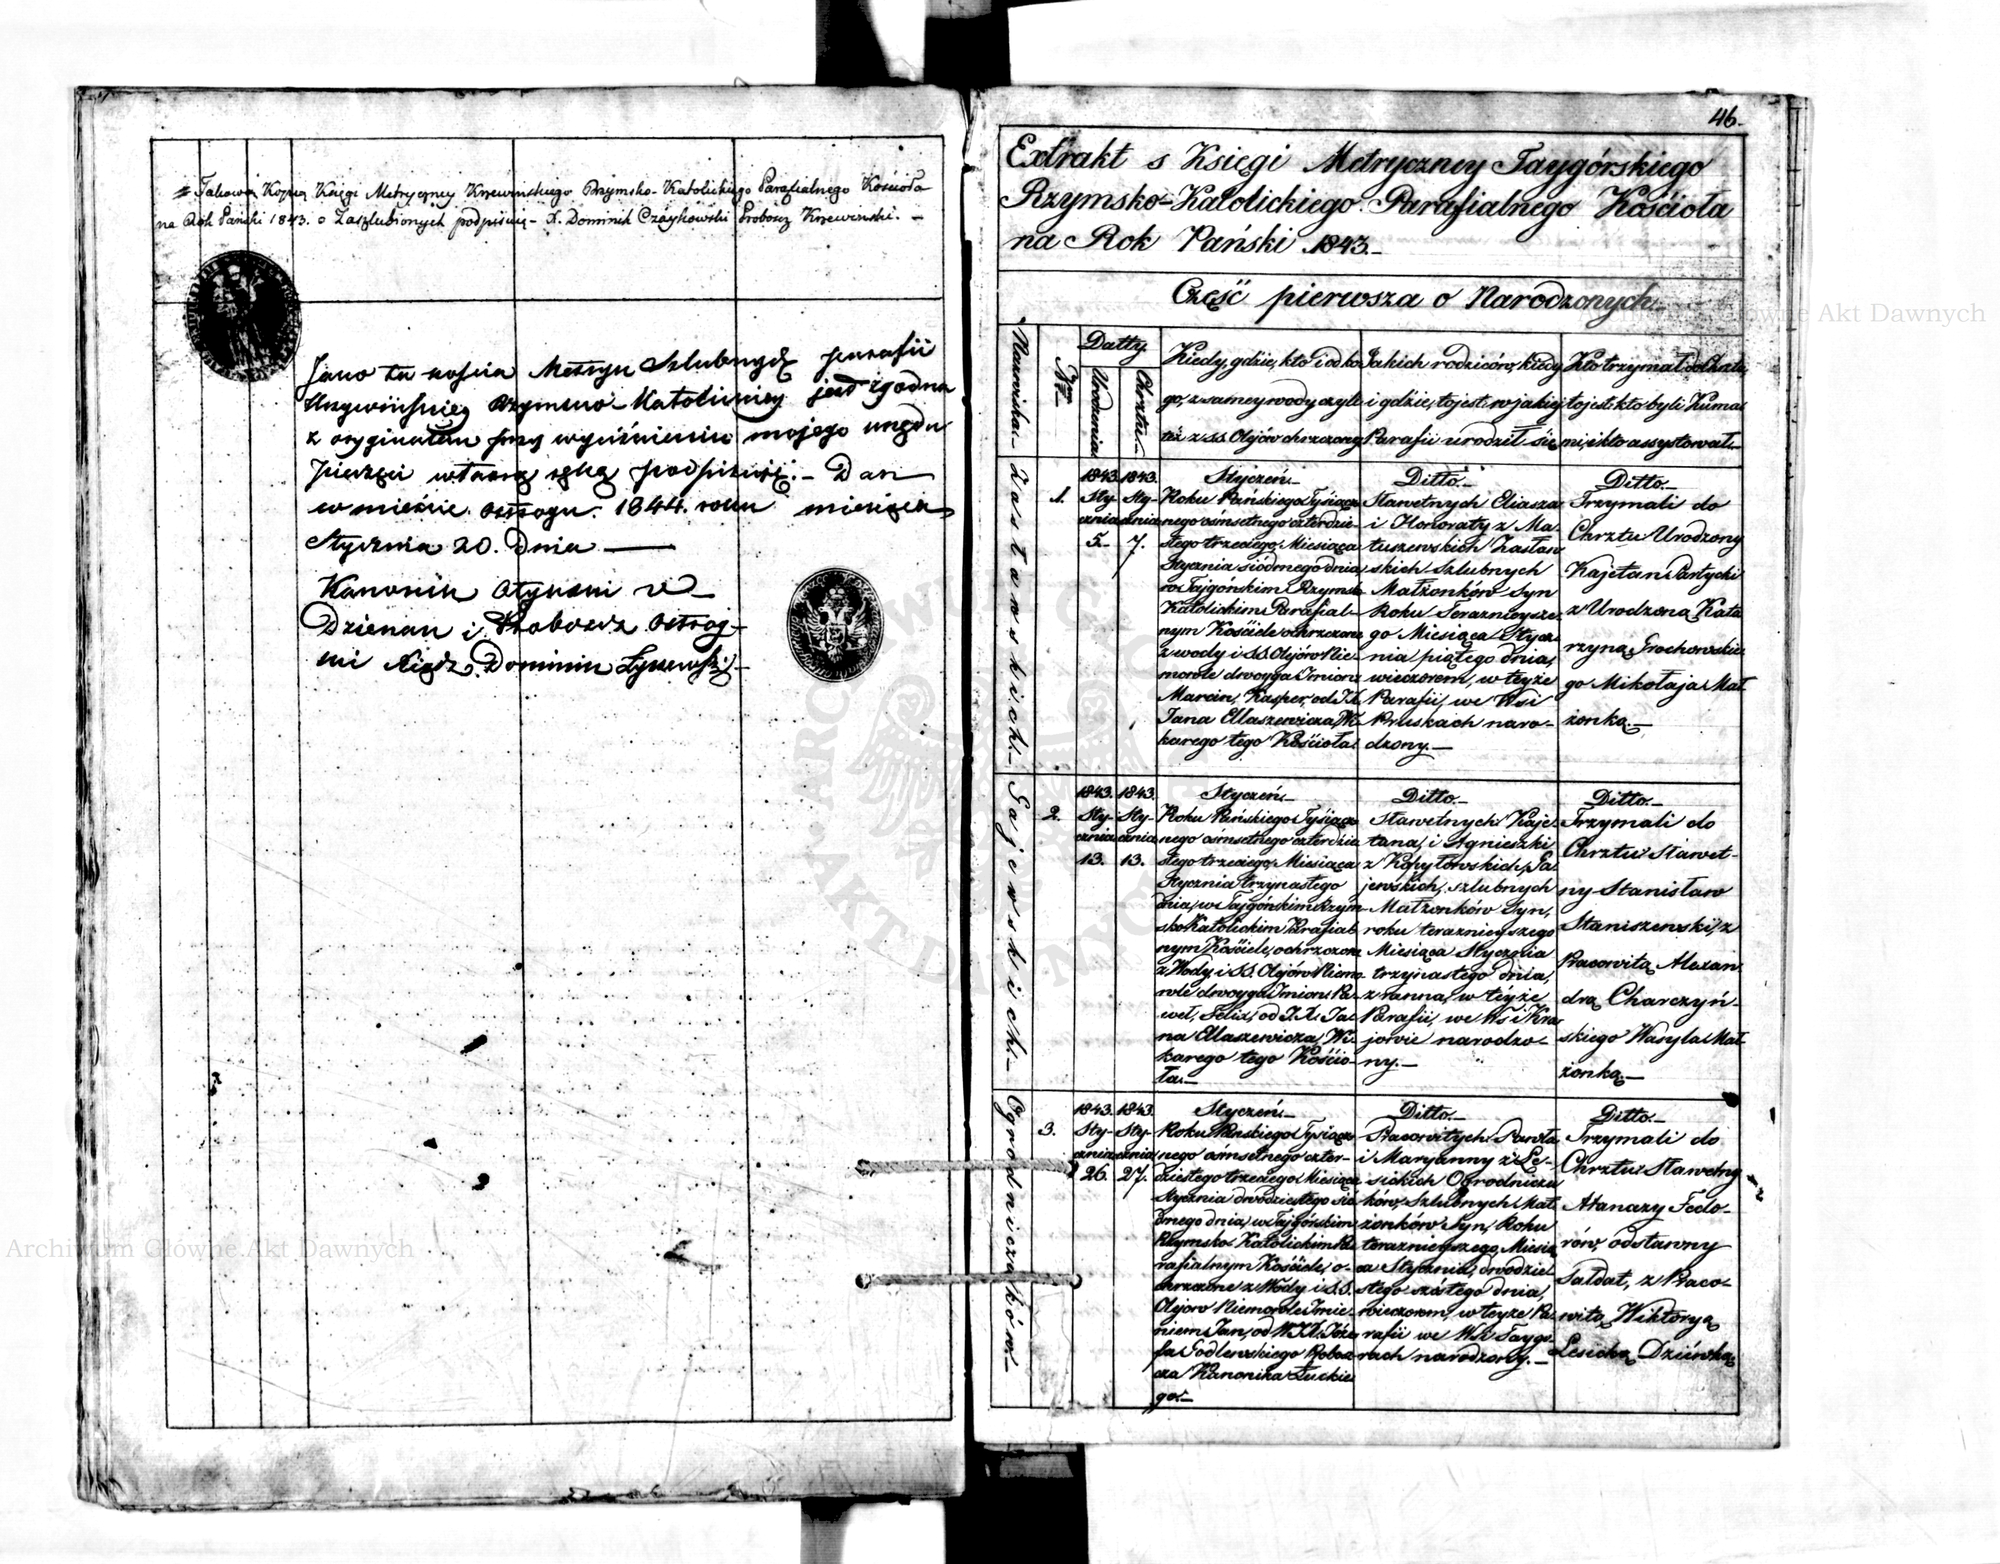 Takową Kopią Księgi Metryczney Krzewińskiego Rzymsko-Katolickiego Parafialnego Kościoła
na Rok Pański 1843. o Zaszlubionych podpisuię - X. Dominik Czaykowski Proboszcz Krzewiński. -
Jako ta kopia Metryk Szlubnych parafii
Krzywińskiey Rzymsko-Katolickiey jest zgodna
z oryginałem przy wyciśnieniu mojego urzędu
pieczęci własną ręką podpisuję. - Dan
w mieście Ostrogu. 1844. roku miesiąca
Stycznia 20. Dnia
Kanonik
Dziekan i Proboszcz Ostrog-
ski Xiądz Dominik
46.
Extrakt s Księgi Metryczney Taygórskiego
Rzymsko-Katolickiego Parafialnego Kościoła
na Rok Pański 1843.-
Część pierwsza o Narodzonych.
Nazwiska.
Nr
Datty
Urodzenia
Chrztu.
Kiedy, gdzie, kto i od ko-
go, z samey wody czyli
też z SS. Olejów chrzczony
Jakich rodziców, kiedy
i gdzie, to jest: w jakiej
Parafii urodził się
Kto trzymał do Chrztu,
to jest: kto byli Kuma-
mi, i kto assystował.
Zasławskich.-
1.
1843.
Sty-
cznia
5.
1843.
Sty-
cznia
7.
Styczeń.
Roku Pańskiego Tysiącz-
nego ośmsetnego czterdzie-
stego trzeciego, Miesiąca
Stycznia siódmego dnia,
w Tajgórskim Rzymsko
Katolickim Parafial-
nym Kościele ochrzczone
z wody i S.S. Olejów Nie-
mowle dwoyga Imion:
Marcin, Kasper, od J.X.
Jana Eliaszewicza, Wi-
karego tego Kościoła.
Ditto.-
Sławetnych Eliasza
i Honoraty z Ma-
tuszewskich Zasław-
skich Szlubnych
Małżonków Syn
Roku Teraznieysze-
go Miesiąca Stycz-
nia piątego dnia,
wieczorem, w teyże
Parafii, we Wsi
Pruskach naro-
dzony.-
Ditto.-
Trzymali do
Chrztu Urodzony
Kajetan Partycki
z Urodzoną Kata-
rzyną Grochowskie-
go Mikołaja Mał-
żonką.-
Gajewskich.-
2.
1843.
Sty-
cznia
13.
1843.
Sty-
cznia
13.
Styczeń.-
Roku Pańskiego Tysiącz-
nego ośmsetnego czterdzie-
stego trzeciego, Miesiąca
Stycznia trzynastego
dnia, w Tajgórskim Rzym-
sko Katolickim Parafial-
nym Kościele, ochrzczone
z Wody i S.S. Olejów Niemo-
wle dwoyga Imion: Pa-
weł, Felix, od J.X. Ja-
na Eliaszewicza, Wi-
karego tego Kościo-
ła.-
Ditto.-
Sławetnych Kaje-
tana, i Agnieszki
z Kopytowskich, Ga-
jewskich, szlubnych
Małżonków Syn,
roku teraznieyszego
Miesiąca Stycznia
trzynastego dnia,
z ranna, w teyże
Parafii, we Wsi Kra-
jowie narodzo-
ny.-
Ditto.-
Trzymali do
Chrztu Sławet-
ny Stanisław
Staniszewski, z
Pracowitą Alexan-
drą Charczyń-
skiego Wasyla Mał-
żonką.-
Ogrodniczaków.-
3.
1843.
Sty-
cznia
26.
1843.
Sty-
cznia
27.
Styczeń.-
Roku Pańskiego Tysiącz-
nego ośmsetnego czter-
dziestego trzeciego, Miesiąca
Stycznia dwódziestego sió-
dmego dnia, w Tajgórskim
Rzymsko Katolickim Pa-
rafialnym Kościele, o-
chrzczone z Wody i S.S.
Olejow Niemowle Imie-
niem Jan, od W.J.X. Józe-
fa Godlewskiego Probosz-
cza Kanonika Łuckie-
go.-
Ditto.-
Pracowitych Pawła
i Maryanny z Le-
sickich Ogrodnicza-
ków, Szlubnych Mał-
żonków Syn, Roku
teraznieyszego, Miesią-
ca Stycznia, dwódzie-
stego szóstego dnia,
wieczorem, w teyże Pa-
rafii we Wsi Taygo-
rach narodzony.-
Ditto.-
Trzymali do
Chrztu Sławetny
Atanazy Fedo-
rów, odstawny
Sałdat, z Praco-
witą Wiktoryą
Lesicką Dziéwką
Archiwum Główne Akt Dawnych
Archiwum Główne Akt Dawnych